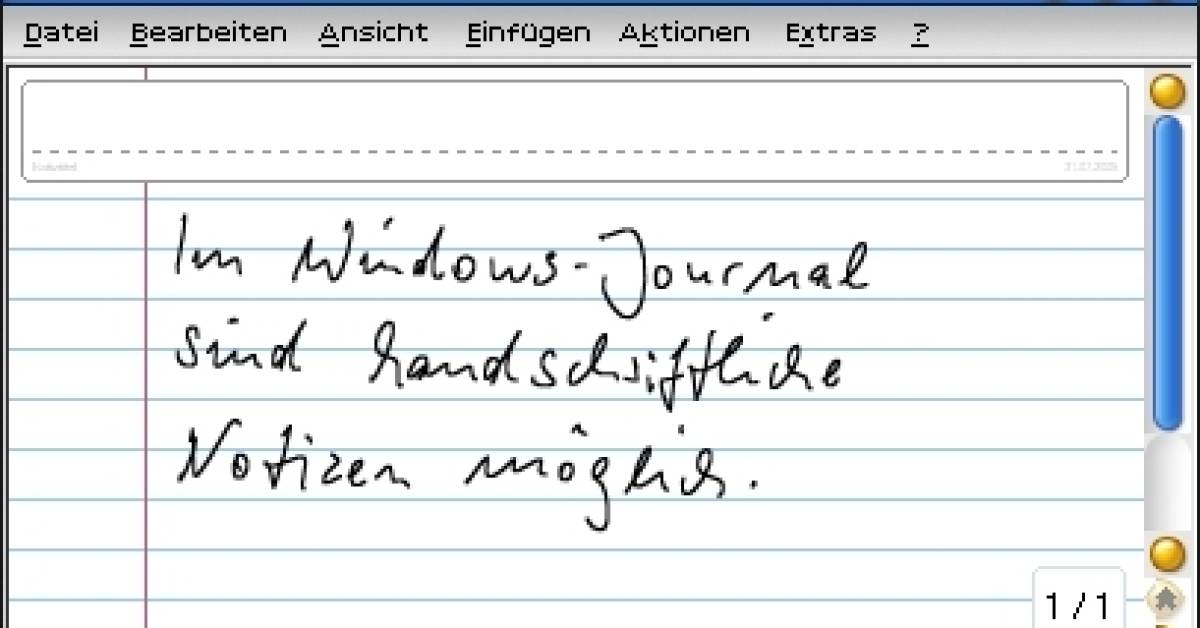 Datei Bearbeiten Ansicht Einfügen Aktionen Extras ?
Im Windows-Journal
sind handschriftliche
Notizen möglich.
1/1